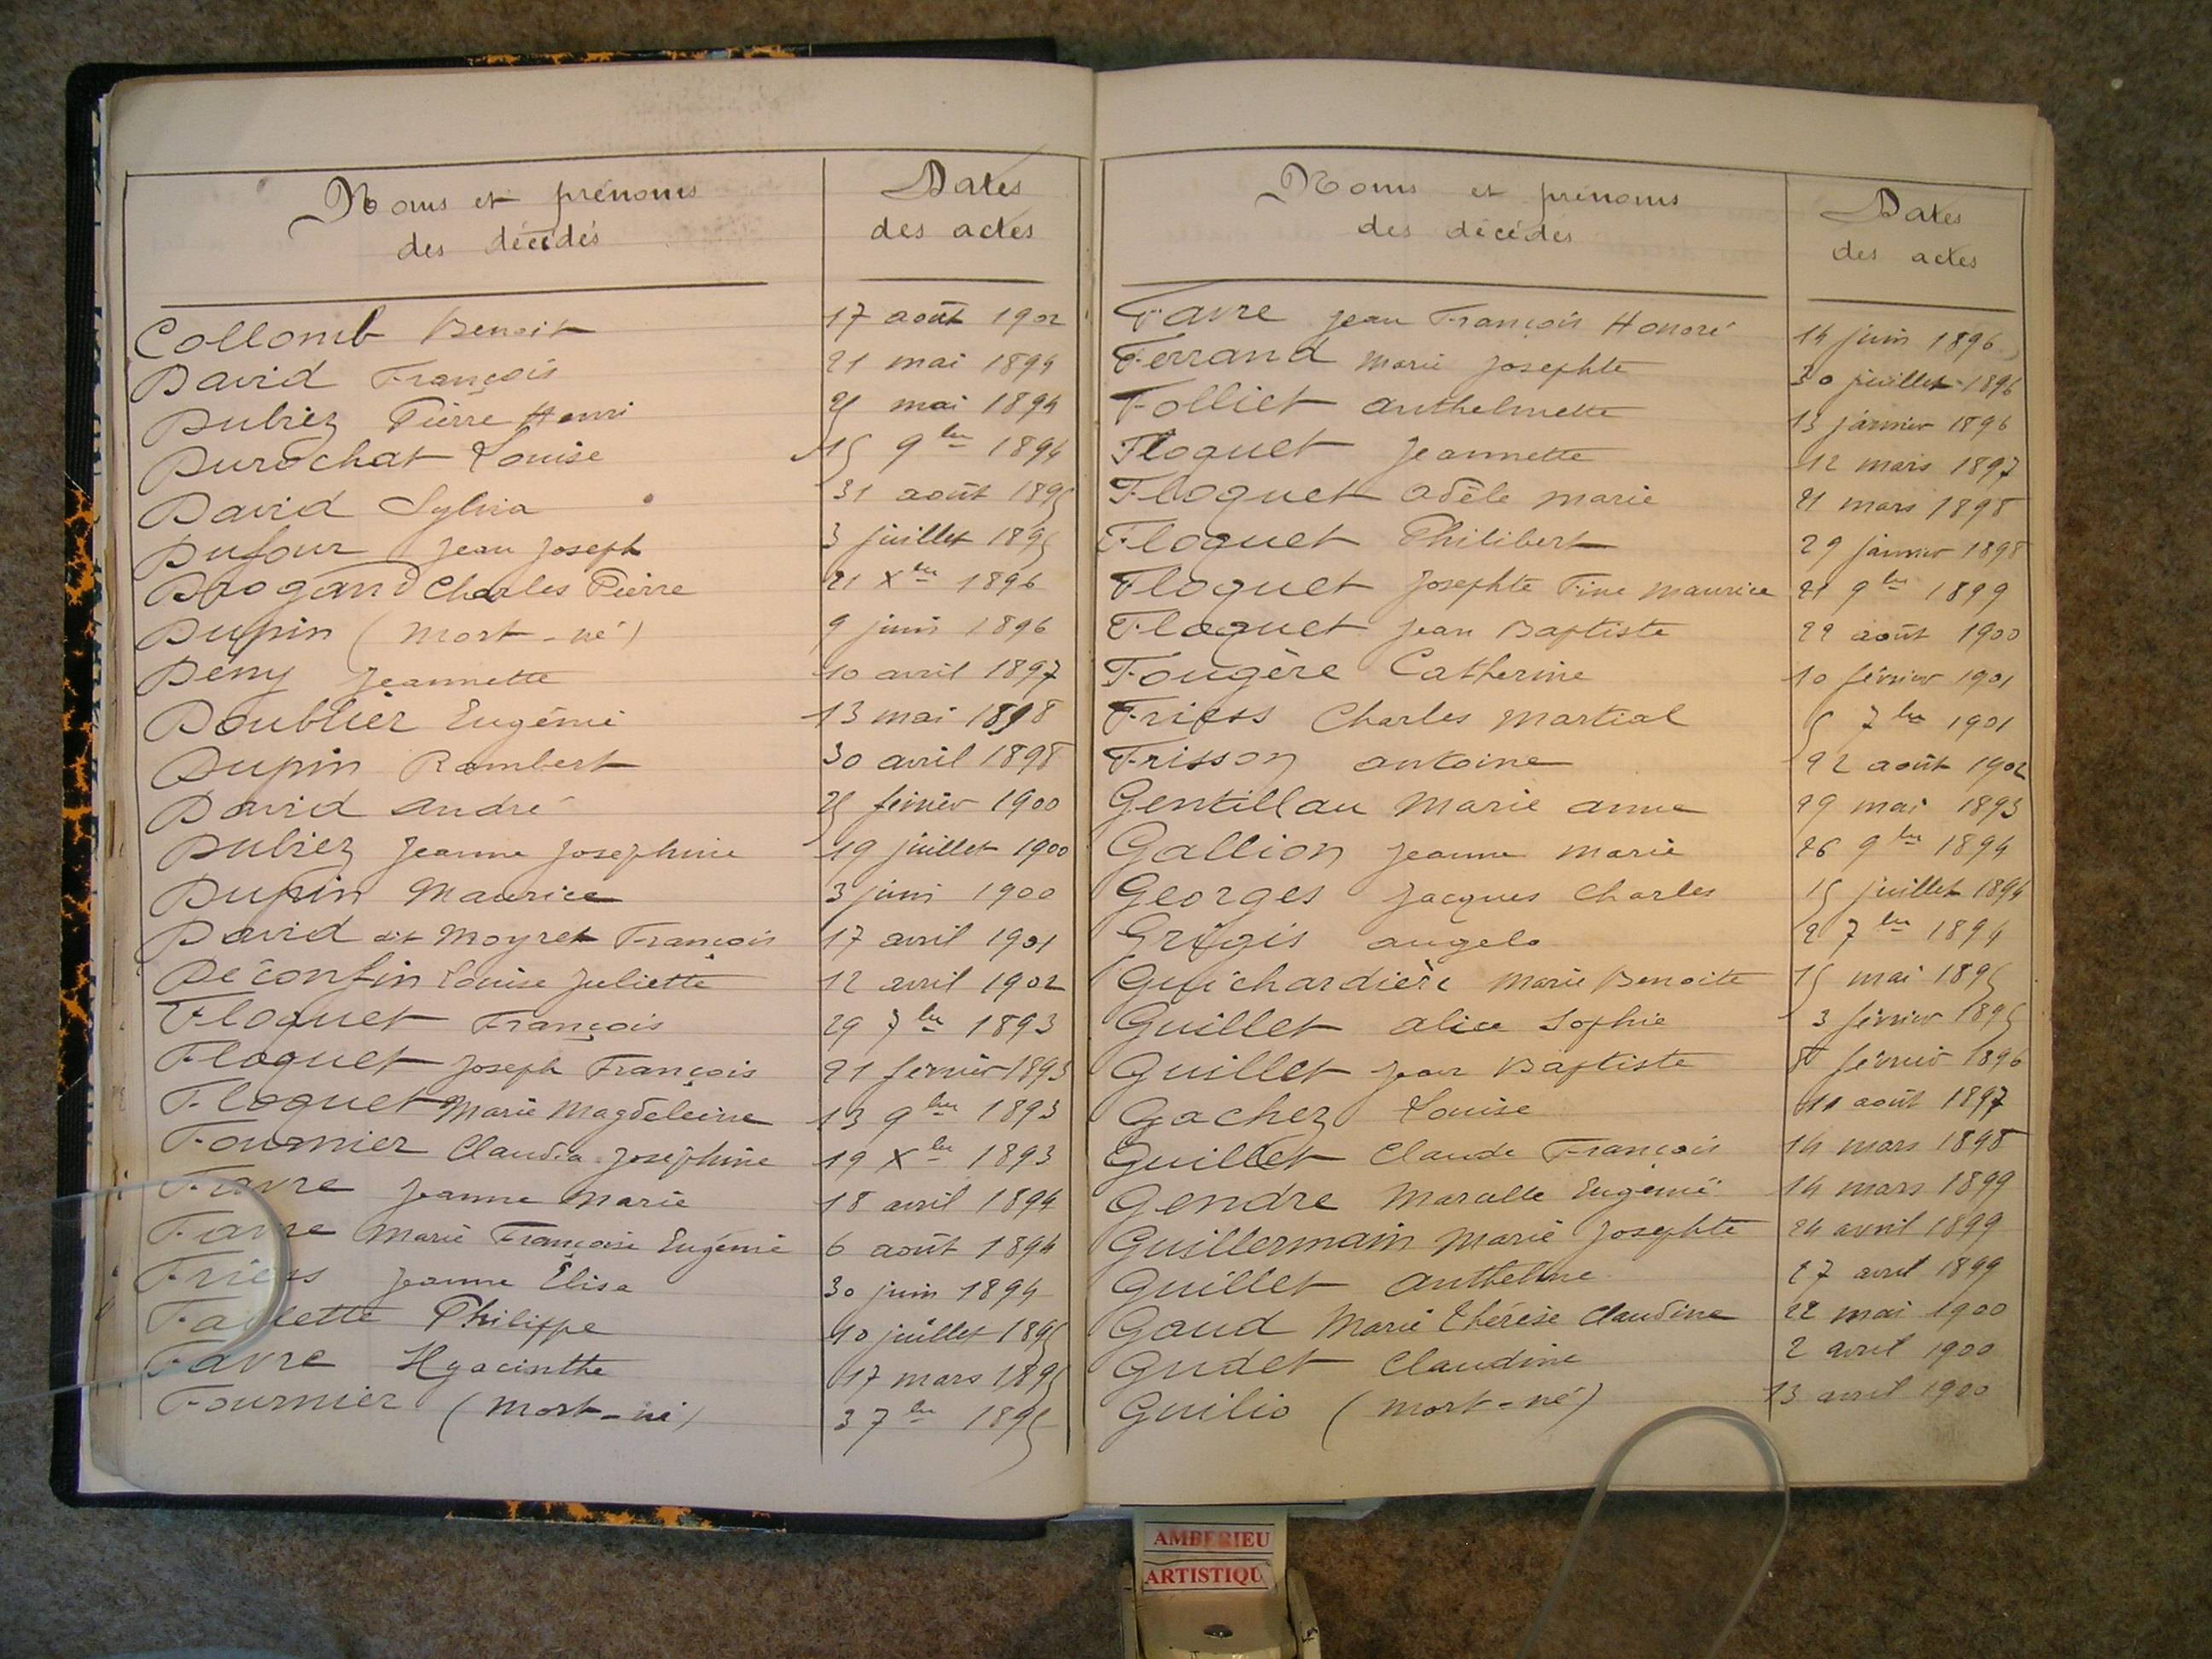 Noms et prénoms
des décédés
Dates
des actes
Collomb Benoit 17 août 1902
David François 21 mai 1894
Dubiez Pierre Henri 25 mai 1894
Durochat Louise 15 9bre 1894
David Sylvia 31 août 1895
Dufour Jean Joseph 3 juillet 1895
Drogand Charles Pierre 21 Xbre 1896
Dupin (mort-né) 9 juin 1896
Dény Jeannette 10 avril 1897
Doublier Eugénie 13 mai 1898
Dupin Rambert 30 avril 1898
David André 25 février 1900
Dubiez Jeanne Josephine 19 juillet 1900
Dupin Maurice 3 juin 1900
David dit Moyret François 17 avril 1901
Déconfin Louise Juliette 12 avril 1902
Floquet François 29 7bre 1893
Floquet Joseph François 21 février 1893
Floquet Marie Magdeleine 13 9bre 1893
Fournier Claudia Joséphine 19 Xbre 1893
Favre Jeanne Marie 18 avril 1894
Favre Marie Françoise Eugénie 6 août 1894
Friess Jeanne Élise 30 juin 1894
Philippe 10 juillet 1895
Favre Hyacinthe 17 mars 1895
Fournier (mort-né) 3 7bre 1895
Noms et prénoms
des décédés
Dates
des actes
Favre Jean François Honoré 14 juin 1896
Ferrand Marie Josephte 30 juillet 1896
Folliet Anthelmette 13 janvier 1896
Floquet Jeannette 12 mars 1897
Floquet Adèle Marie 21 mars 1898
Floquet Philibert 29 janvier 1898
Floquet Josephte Fine Maurice 21 9bre 1899
Floquet Jean Baptiste 22 août 1900
Fougère Catherine 10 février 1901
Friess Charles Martial 5 7bre 1901
Frisson Antoine 22 août 1902
Gentillau Marie Anne 29 mai 1893
Gallion Jeanne Marie 26 9bre 1894
Georges Jacques Charles 15 juillet 1894
Grigis Angelo 2 7bre 1894
Guichardière Marie Benoite 15 mai 1895
Guillet Alice Sophie 3 février 1895
Guillet Jean Baptiste février 1896
Gachez Louise 11 août 1897
Guillet Claude François 14 mars 1898
Gendre Marcelle Eugénie 14 mars 1899
Guillermain Marie Josephte 24 avril 1899
Guillet Anthelme 27 avril 1899
Gaud Marie Thérèse Claudine 22 mai 1900
Gudet Claudine 2 avril 1900
Guilio (mort-né) 13 avril 1900
AMBERIEU
ARTISTIQU